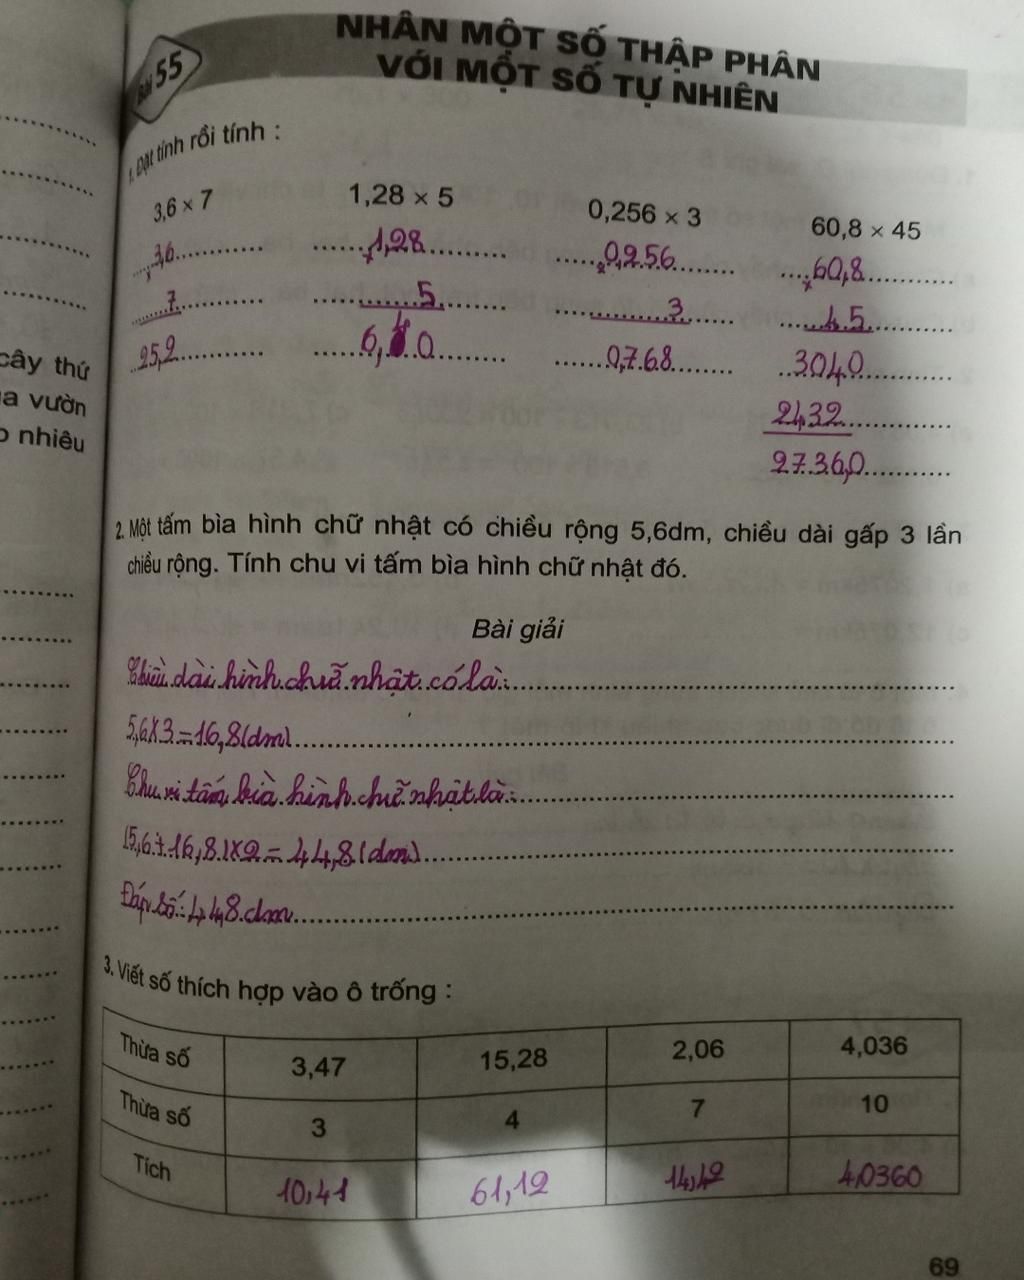 NHÂN MỘT SỐ THẬP PHÂN
VỚI MỘT SỐ TỰ NHIÊN
Bài 55
1. Đặt tính rồi tính :
3,6 × 7 1,28 × 5 0,256 × 3 60,8 × 45
3,6 1,28 0,256 60,8
× × × ×
7 5 3 45
25,2 6,40 0,768 3040
2432
2736,0
cây thứ
a vườn
nhiêu
2. Một tấm bìa hình chữ nhật có chiều rộng 5,6dm, chiều dài gấp 3 lần
chiều rộng. Tính chu vi tấm bìa hình chữ nhật đó.
Bài giải
Chiều dài hình chữ nhật có là:
5,6x3=16,8(dm)
Chu vi tấm bìa hình chữ nhật là:
(5,6+16,8)x2=44,8(dm)
Đáp số: 44,8 dm
3. Viết số thích hợp vào ô trống :
Thừa số 3,47 15,28 2,06 4,036
Thừa số 3 4 7 10
Tích 10,41 61,12 14,42 4,0360
69